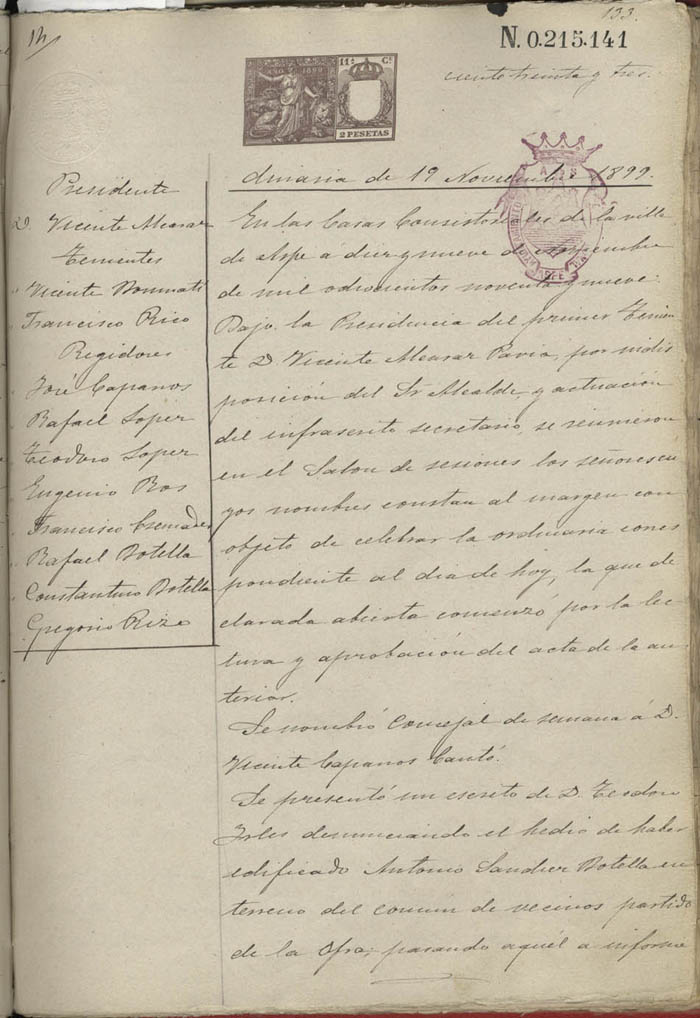 133.
14
N. 0.215.141
ciento treinta y tres.
AÑO 1899
11ª Cª
2 PESETAS
dinaria de 19 Noviembre 1899.
Presidente
D. Vicente Alcaraz
Tenientes
" Vicente
" Francisco Rico
Regidores
" José Capanos
" Rafael Loper
" Teodoro Loper
" Eugenio Ros
" Francisco Cremades
" Rafael Botella
" Constantino Botella
" Gregorio Rizo
En las Casas Consistoriales de la villa
de Aspe á diez y nueve de Noviembre
de mil ochocientos noventa y nueve:
Bajo la Presidencia del primer Tenien
te D. Vicente Alcaraz Pavia, por indis
posición del Sr Alcalde, y actuación
del infrascrito secretario, se reunieron
en el Salon de sesiones los señores cu
yos nombres constan al margen con
objeto de celebrar la ordinaria corres
pondiente al dia de hoy, la que de
clarada abierta comenzó por la lec
tura y aprobación del acta de la an
terior.
Se nombró Concejal de semana á D.
Vicente Capanos Cantó.
Se presentó un escrito de D. Teodoro
Irles denunciando el hecho de haber
edificado Antonio Sanchez Botella en
terreno del comun de vecinos partido
de la Ofra; pasando aquél a informe